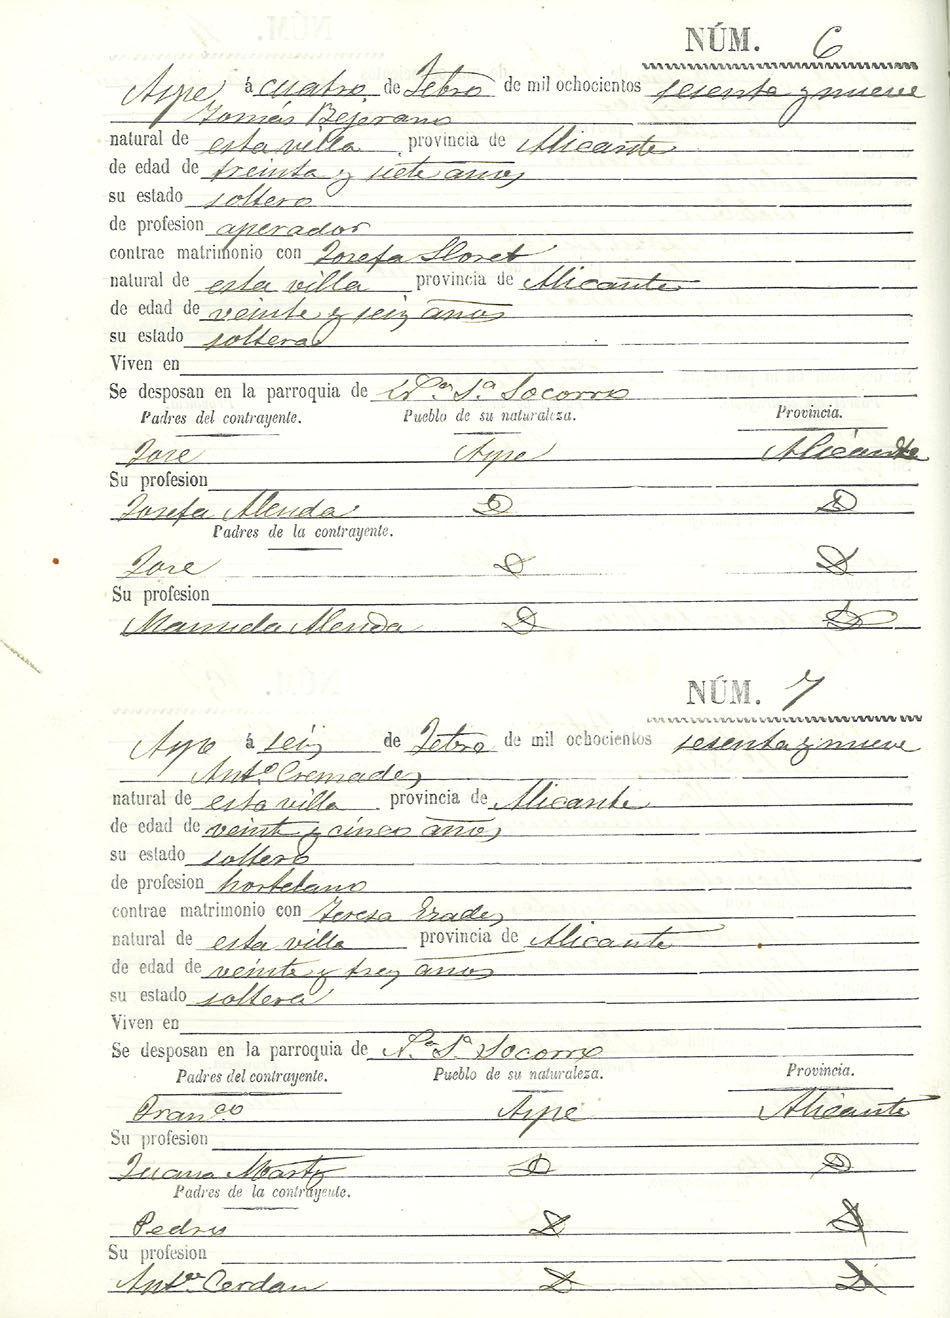 NÚM. 6
Aspe á cuatro de Febro de mil ochocientos sesenta y nueve
Tomás Bejerano
natural de esta villa provincia de Alicante
de edad de treinta y siete años
su estado soltero
de profesion aperador
contrae matrimonio con Josefa Lloret
natural de esta villa provincia de Alicante
de edad de veinte y seis años
su estado soltera
Viven en
Se desposan en la parroquia de Sª Socorro
Padres del contrayente. Pueblo de su naturaleza. Provincia.
José Aspe Alicante
Su profesion
Josefa Alenda D D
Padres de la contrayente.
José D D
Su profesion
Manuela Alenda D D
NÚM. 7
Aspe á seis de Febro de mil ochocientos sesenta y nueve
Antº Cremades
natural de esta villa provincia de Alicante
de edad de veinte y cinco años
su estado soltero
de profesion hortelano
contrae matrimonio con Teresa Erades
natural de esta villa provincia de Alicante
de edad de veinte y tres años
su estado soltera
Viven en
Se desposan en la parroquia de Nª Sª Socorro
Padres del contrayente. Pueblo de su naturaleza. Provincia.
Francº Aspe Alicante
Su profesion
Juana Martz D D
Padres de la contrayente.
Pedro D D
Su profesion
Antª Cerdan D D